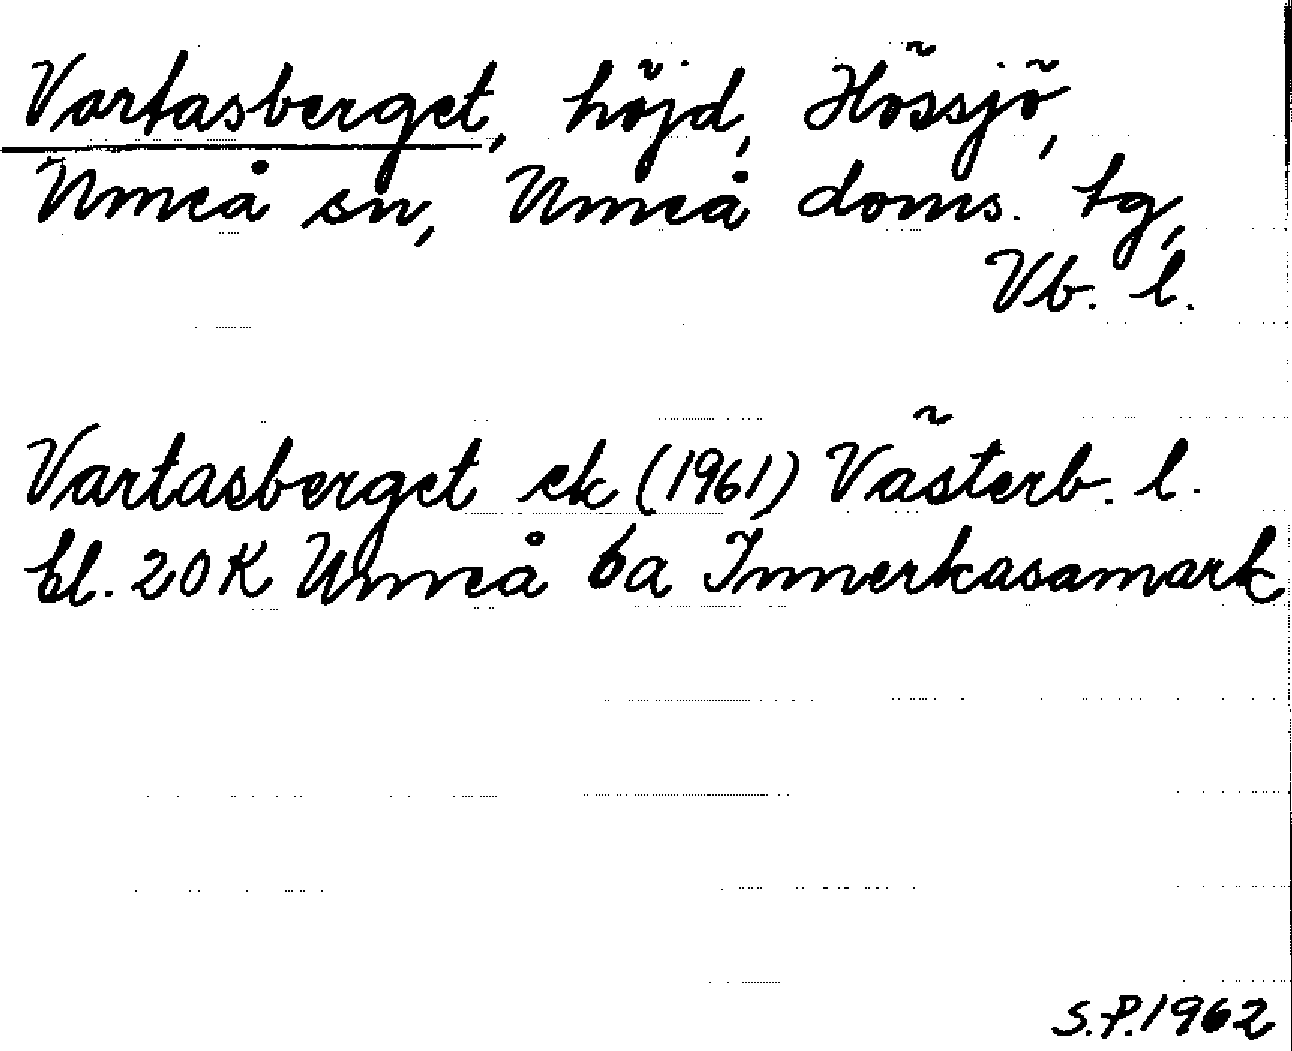 Vartasberget, höjd, Hössjö,
Umeå sn, Umeå doms. tg,
Vb. l.
Vartasberget ek (1961) Västerb. l.
bl. 20K Umeå 6a Innerkasamark
S.P. 1962